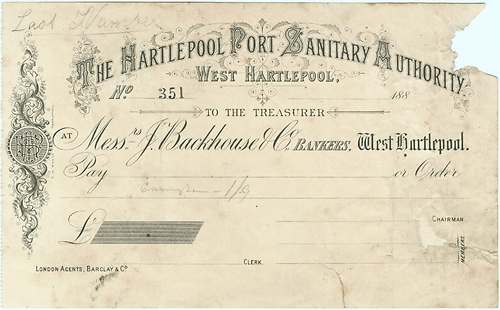 Last Number
THE HARTLEPOOL PORT SANITARY AUTHORITY,
WEST HARTLEPOOL,
No 351 188
TO THE TREASURER
AT Mess.rs J. Backhouse & Co. BANKERS, West Hartlepool.
Pay or Order
1/9
£
CHAIRMAN.
MEMBERS.
CLERK.
LONDON AGENTS, BARCLAY & Co.